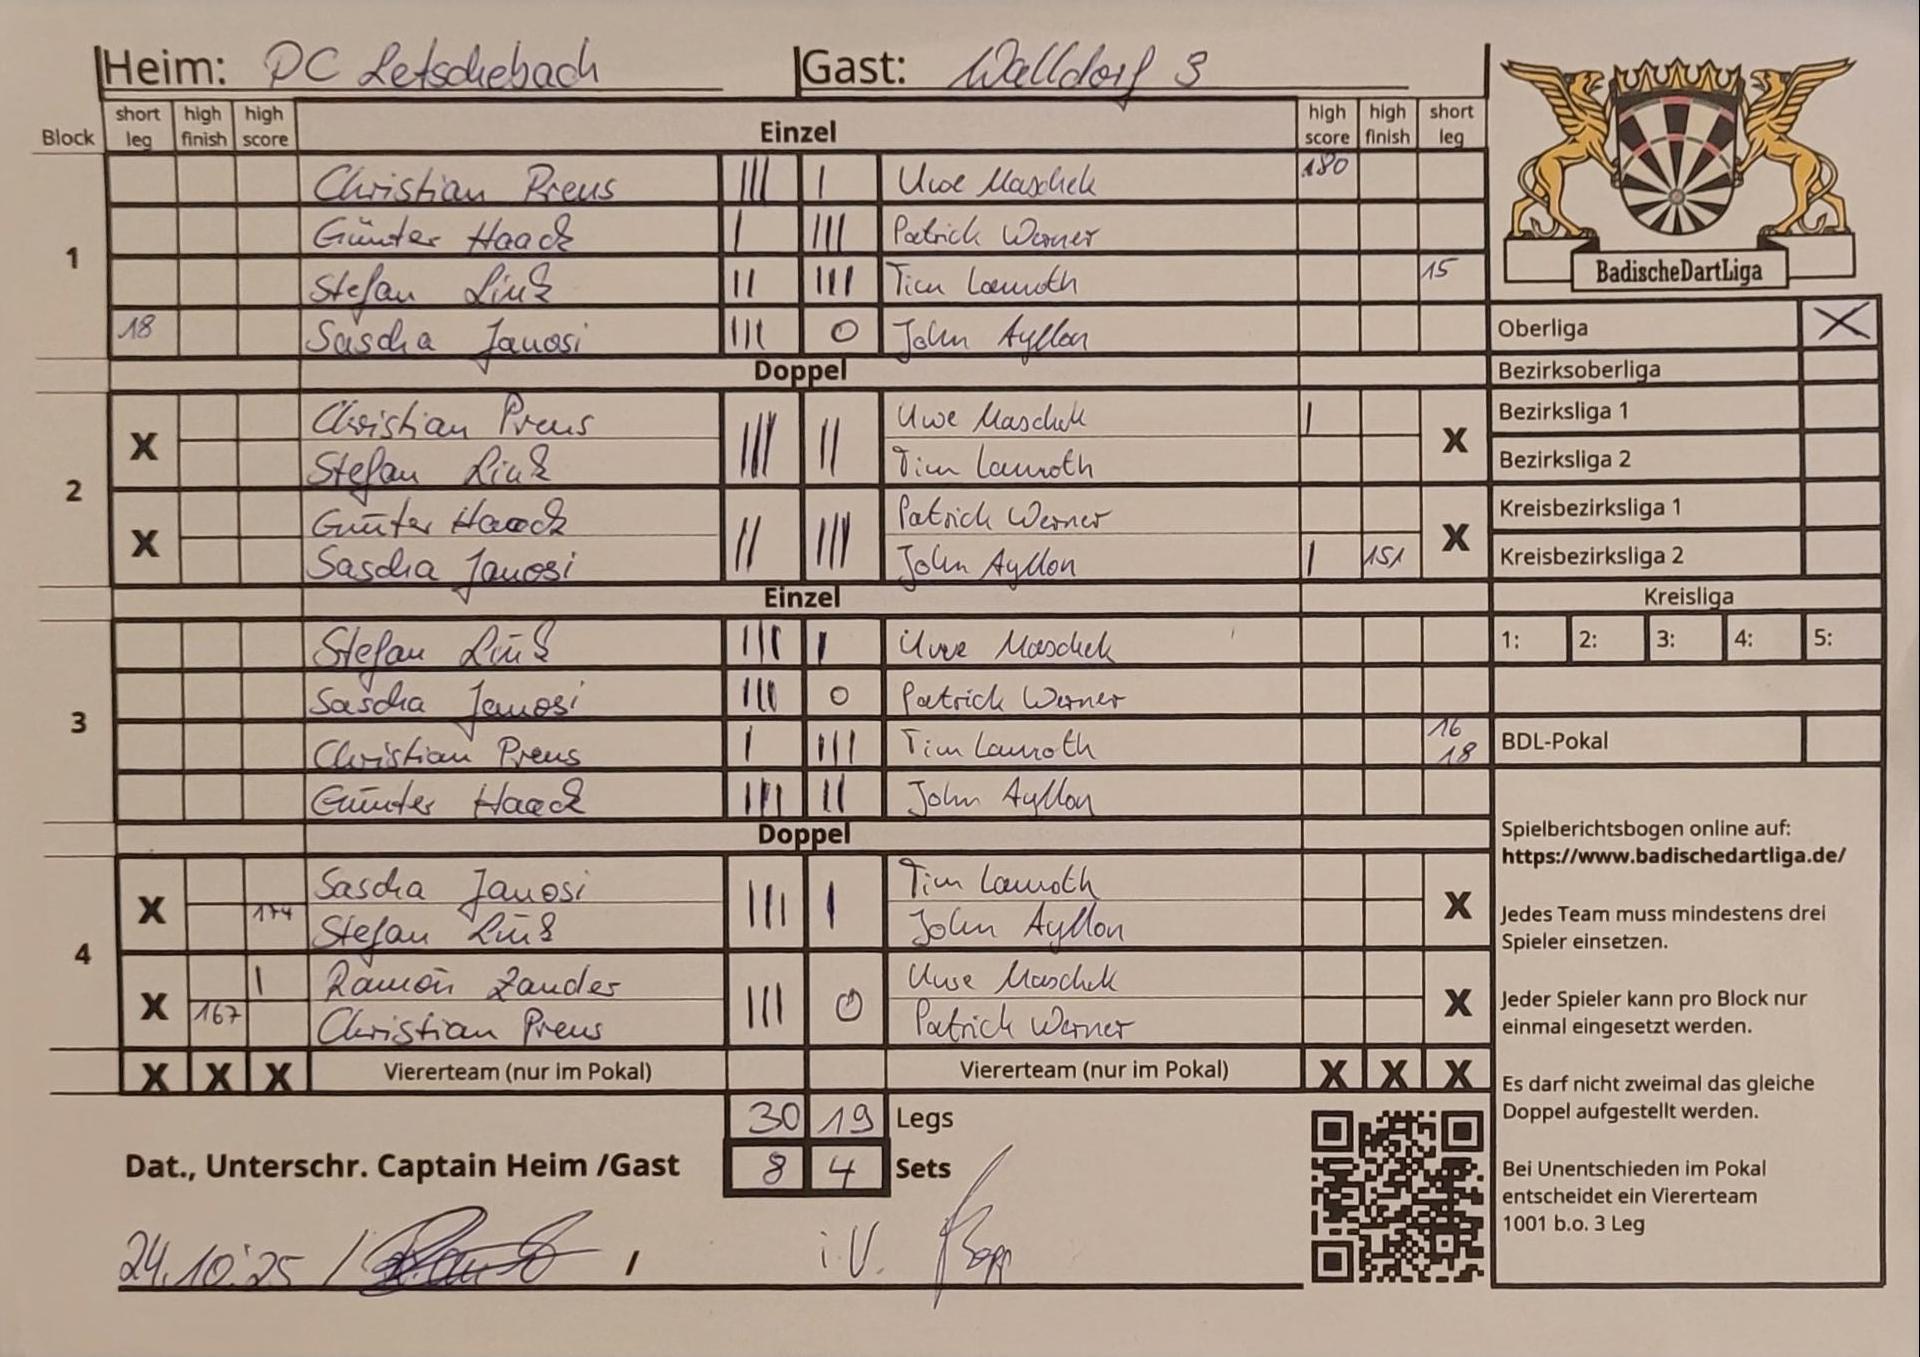 Heim: DC Letschebach Gast: Walldorf 3
Block short leg high finish high score Einzel high score high finish short leg
1
Christian Preus ||| | Uwe Maschek 180
Günter Haack | ||| Patrick Werner
Stefan Link || ||| Tim Lamroth 15
18 Sascha Janosi ||| 0 John Ayllon
Doppel
2
X Christian Preus ||| || Uwe Maschek | X
Stefan Link Tim Lamroth
X Günter Haack || ||| Patrick Werner X
Sascha Janosi John Ayllon | 151
Einzel
3
Stefan Link ||| | Uwe Maschek
Sascha Janosi ||| 0 Patrick Werner
Christian Preus | ||| Tim Lamroth 16 18
Günter Haack ||| || John Ayllon
Doppel
4
X Sascha Janosi ||| | Tim Lamroth X
174 Stefan Link John Ayllon
X | Ramon Zander ||| 0 Uwe Maschek X
167 Christian Preus Patrick Werner
X X X Viererteam (nur im Pokal) Viererteam (nur im Pokal) X X X
30 19 Legs
Dat., Unterschr. Captain Heim /Gast 8 4 Sets
24.10.25 / / i.V.
BadischeDartLiga
Oberliga X
Bezirksoberliga
Bezirksliga 1
Bezirksliga 2
Kreisbezirksliga 1
Kreisbezirksliga 2
Kreisliga
1: 2: 3: 4: 5:
BDL-Pokal
Spielberichtsbogen online auf:
https://www.badischedartliga.de/
Jedes Team muss mindestens drei
Spieler einsetzen.
Jeder Spieler kann pro Block nur
einmal eingesetzt werden.
Es darf nicht zweimal das gleiche
Doppel aufgestellt werden.
Bei Unentschieden im Pokal
entscheidet ein Viererteam
1001 b.o. 3 Leg